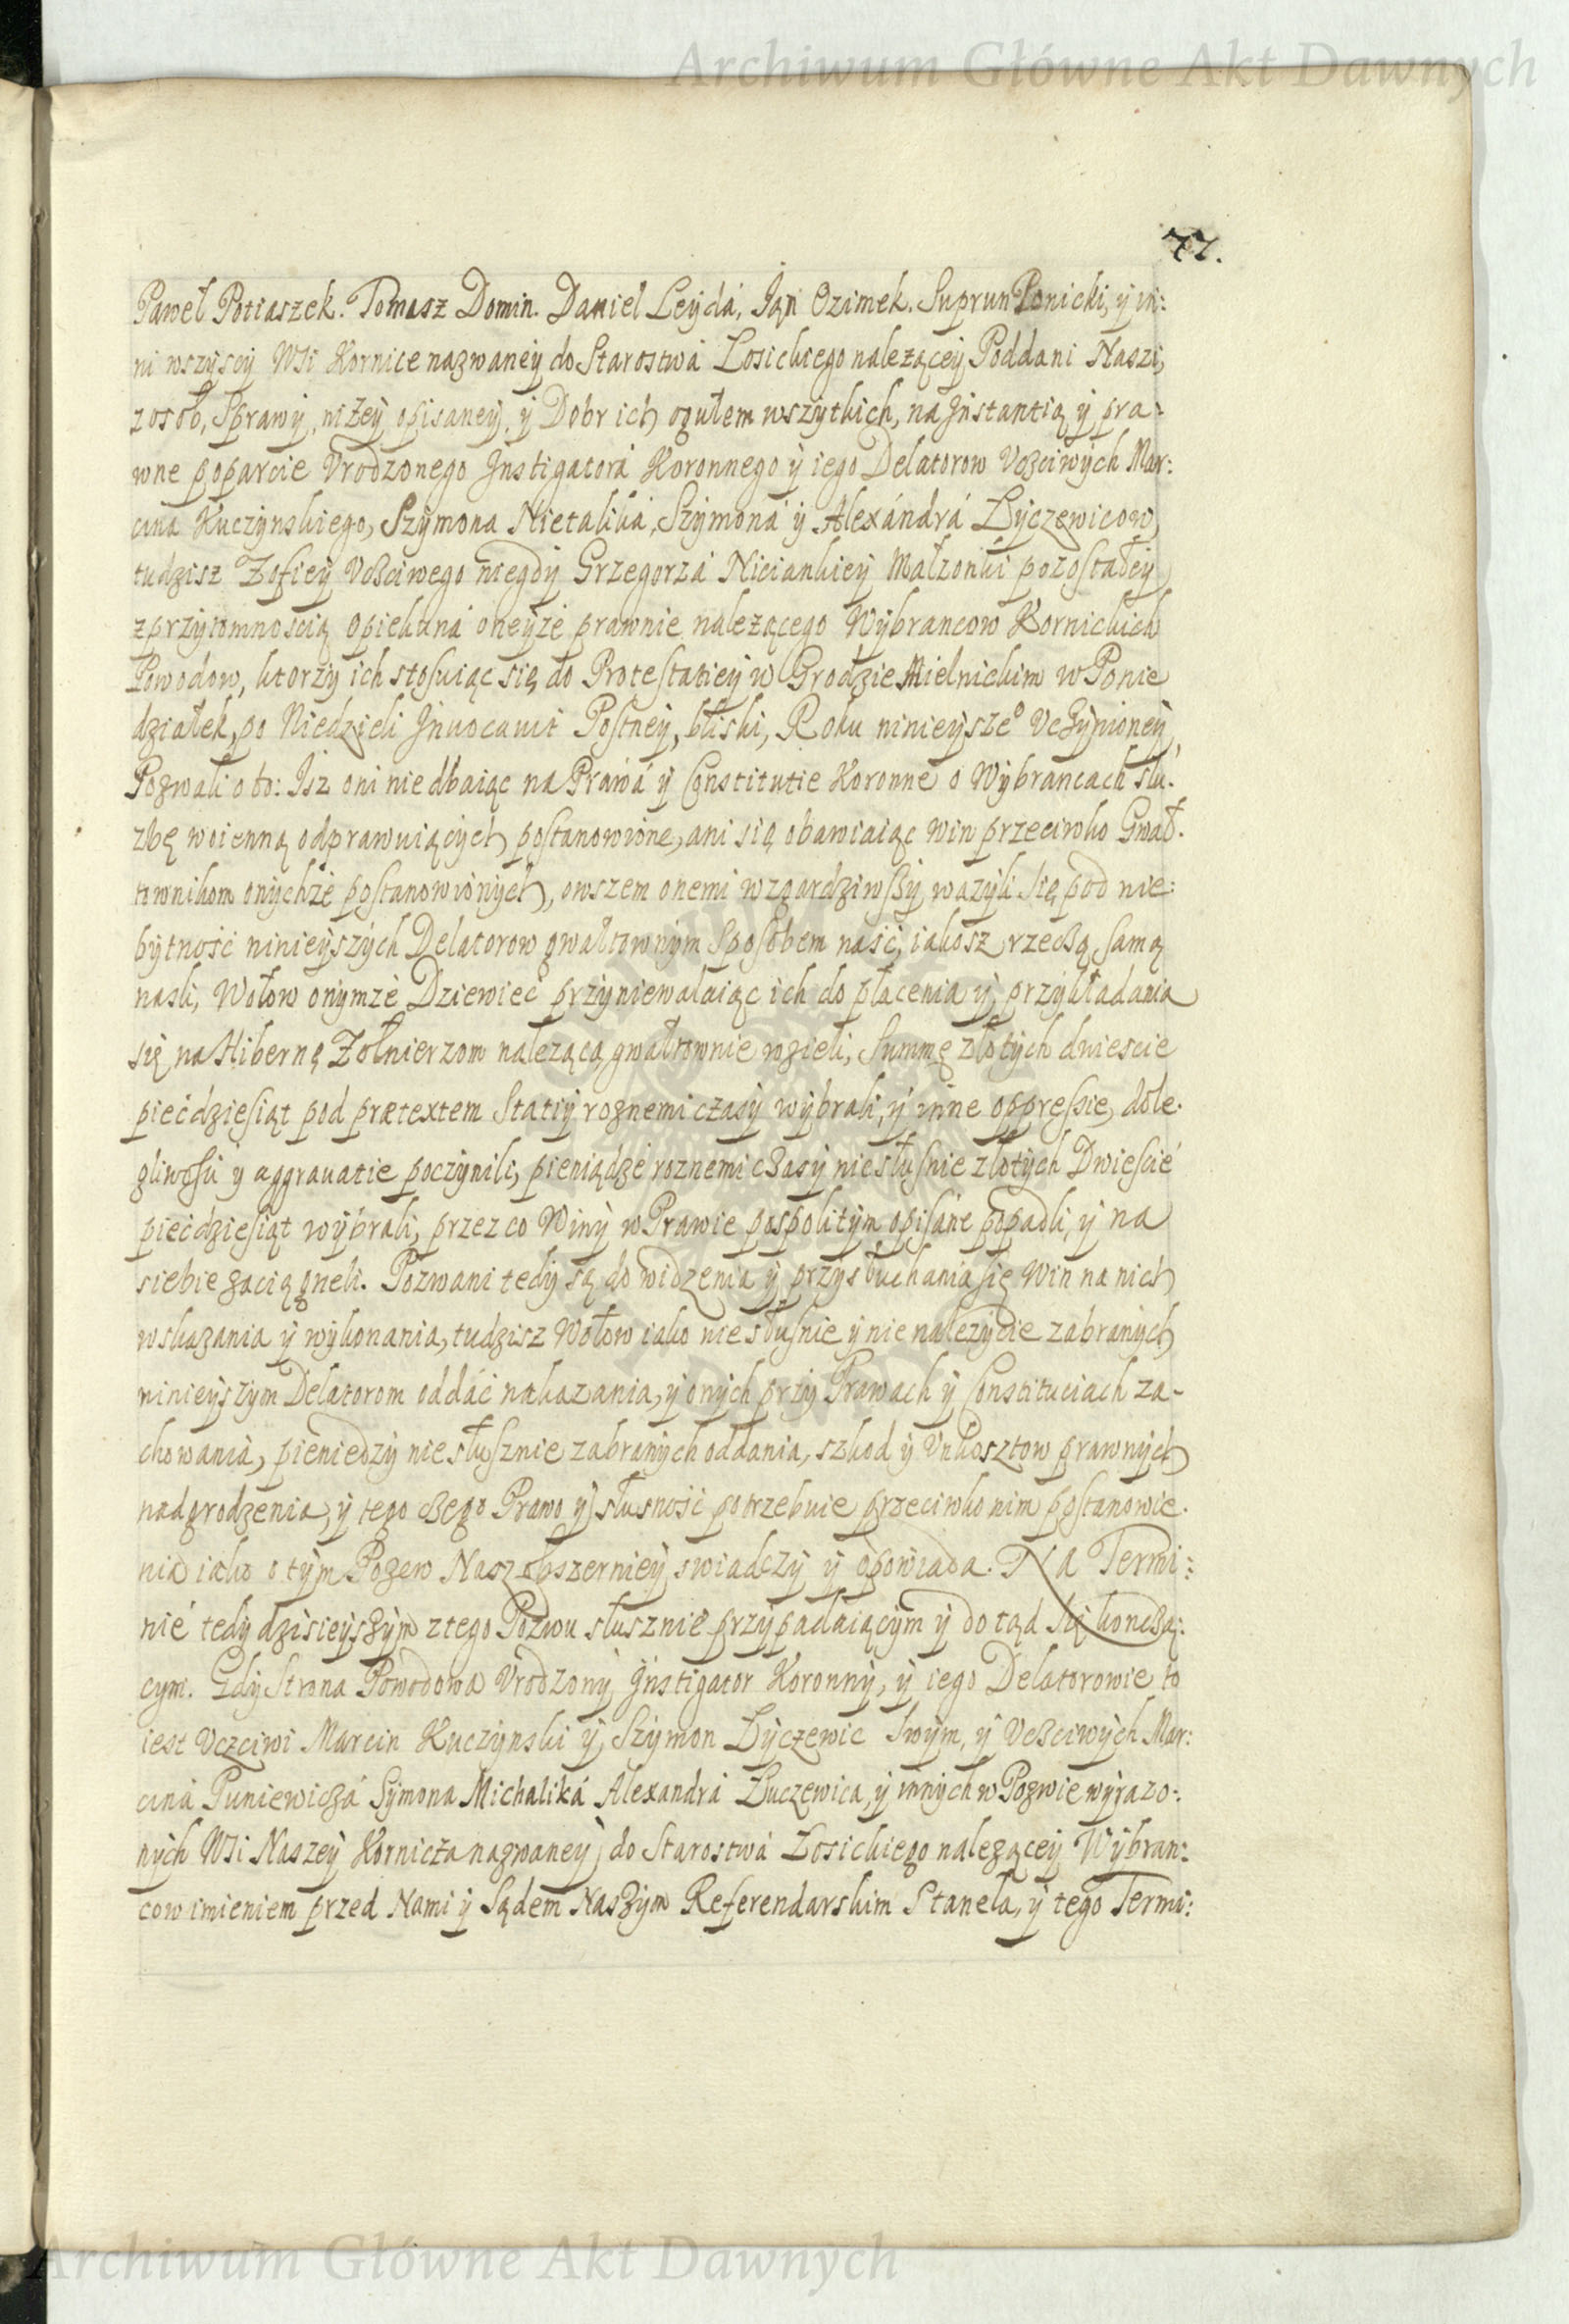 Archiwum Główne Akt Dawnych
77.
Paweł Potiaszek. Tomasz Domin. Daniel Leyda, Ian Ozimek. Suprun Ponicki, y in:
ni wszyscy Wsi Kornice nazwaney do Starostwá Łosickiego należącey Poddani Naszi,
z osob, Sprawy, niżey opisaney, y Dobr ich ogułem wszytkich, na Jnstantią y pra:
wne poparcie Vrodzonego Jnstigatorá Koronnego y iego Delatorow Vczciwych Mar:
cina Kuczynskiego, Szymona Nietaliká, Szymoná y Alexándrá Łyczewicow,
tudzisz Zofiey Vczciwego niegdy Grzegorzá Niciankiey Małżonki pozostałey
z przytomnoscią Opiekuná oneyże prawnie należącego Wybrancow Kornickich
Powodow, ktorzy ich stosuiąc się do Protestatiey w Grodzie Mielnickim w Ponie
działek, po Niedzieli Jnuocauit Postney, bliski, Roku ninieysze° Vczynioney,
Pozwali o to: Jsz oni nie dbaiąc na Práwá y Constitutie Koronne o Wybrancach słu:
żbę woienną odprawuiących postanowione, ani się obawiaiąc win przeciwko Gwał:
townikom onychże postanowionych, owszem onemi wzgardziwszy, ważyli się pod nie:
bytność ninieyszych Delatorow gwałtownym Sposobem naść, iakosz rzeczą samą
naśli, Wołow onymże Dziewieć przyniewalaiąc ich do płacenia y przykładania
się na Hibernę Żołnierzom należącą, gwałtownie wzieli, Summę złotych dwiescie
piećdziesiąt pod prætextem Statiy rożnemi czasy wybrali, y inne oppressie, dole:
gliwości y aggrauatie poczynili, pieniądze rożnemi czasy niesłusnie złotych Dwieście
piećdziesiąt wybrali, przez co Winy w Prawie pospolitym opisáne popadli, y na
siebie zaciągneli. Pozwani tedy są do widzenia y przysłuchania się Win na nich
wskazania y wykonania, tudzisz Wołow iako niesłusnie y nienależycie zabranych
ninieyszym Delatorom oddáć nakazania, y onych przy Prawach y Constituciach za-
chowania, pieniedzy niesłusznie zabranych oddania, szkod y Vnkosztow prawnych
nadgrodzenia, y tego czego Prawo y słusność potrzebuie przeciwko nim postanowie:
nia iako o tym Pozew Nasz obszerniey swiadczy y opowiada. Na Termi:
nie tedy dzisieyszym z tego Pozwu słusznie przypadaiącym y do tąd się konczą:
cym. Gdy Strona Powodowa Vrodzony Jnstigator Koronny, y iego Delatorowie to
iest Vczciwi Marcin Kuczynski y Szymon Łyczewic swym, y Vczciwych Mar:
ciná Puniewiczá Symona Michaliká Alexandrá Łuczewica, y innych w Pozwie wyrazo:
nych Wsi Naszey Kornicza nazwaney, do Starostwá Łosickiego należącey Wybran:
cow imieniem przed Nami y Sądem Naszym Referendarskim Stanela, y tego Termi:
Archiwum Główne Akt Dawnych